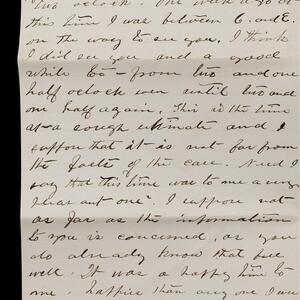 two oclock. One week ago at
this time I was between C. and E.
on the way to see you. I think
I did see you and a good
while too - from two and one
half oclock even until two and
one half again. This is the time
at a rough estimate and I
suppose that it is not far from
the facts of the case. Need I
say that this time was to me a very
dear one? I suppose not
as far as the information
to you is concerned, as you
do already know that full
well. It was a happy time to
me. happier than any one I ever